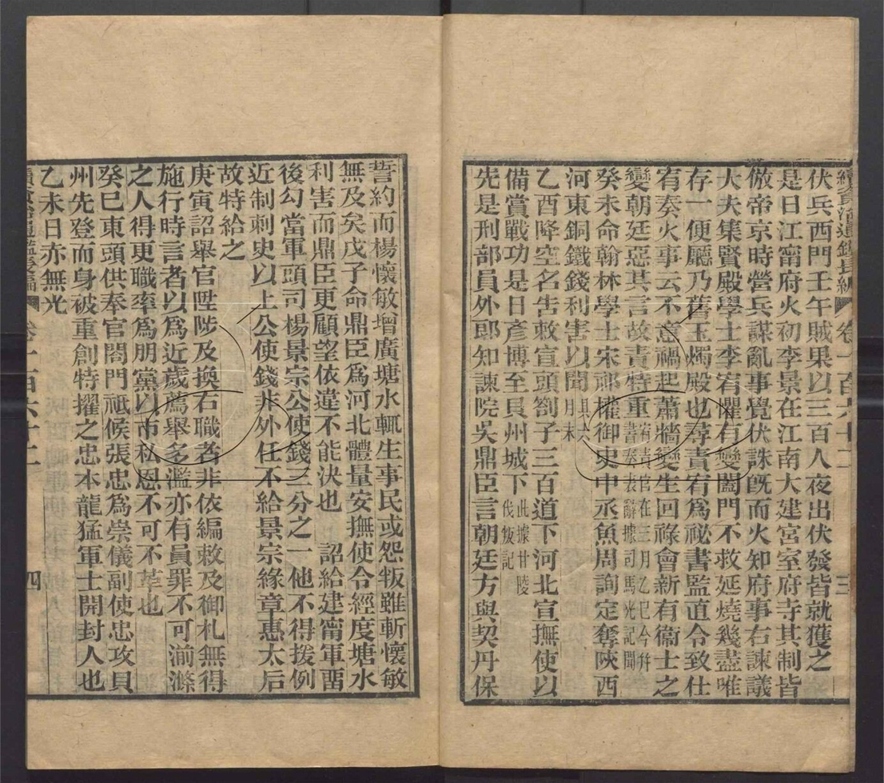 續資治通鑑長編
卷一百六十二
三
伏兵西門壬午賊果以三百人夜出伏發皆就獲之
是日江甯府火初李景在江南大建宮室府寺其制皆
倣帝京時營兵謀亂事覺伏誅旣而火知府事右諫議
大夫集賢殿學士李宥懼有變闔門不救延燒幾盡唯
存一便廳乃舊玉燭殿也尋責宥爲祕書監直令致仕
宥奏火事云不意禍起蕭牆變生回祿會新有衞士之
變朝廷惡其言故責特重宥責官在三月乙巳今幷
書奏表辭據司馬光記聞
癸未命翰林學士宋祁權御史中丞魚周詢定奪陝西
河東銅鐵錢利害以聞
乙酉降空名告敕宣頭劄子三百道下河北宣撫使以
備賞戰功是日彥博至貝州城下此據甘陵
伐叛記
先是刑部員外郎知諫院吳鼎臣言朝廷方與契丹保
誓約而楊懷敏增廣塘水輒生事民或怨叛雖斬懷敏
無及矣戊子命鼎臣爲河北體量安撫使令經度塘水
利害而鼎臣更顧望依違不能決也 詔給建甯軍畱
後勾當軍頭司楊景宗公使錢三分之一他不得援例
近制刺史以上公使錢非外任不給景宗緣章惠太后
故特給之
庚寅詔舉官陞陟及換右職者非依編敕及御札無得
施行時言者以爲近歲薦舉多濫亦有負罪不可湔滌
之人得更職率爲朋黨以市私恩不可不革也
癸巳東頭供奉官閤門祗候張忠爲崇儀副使忠攻貝
州先登而身被重創特擢之忠本龍猛軍士開封人也
乙未日赤無光
續資治通鑑長編
卷一百六十二
四